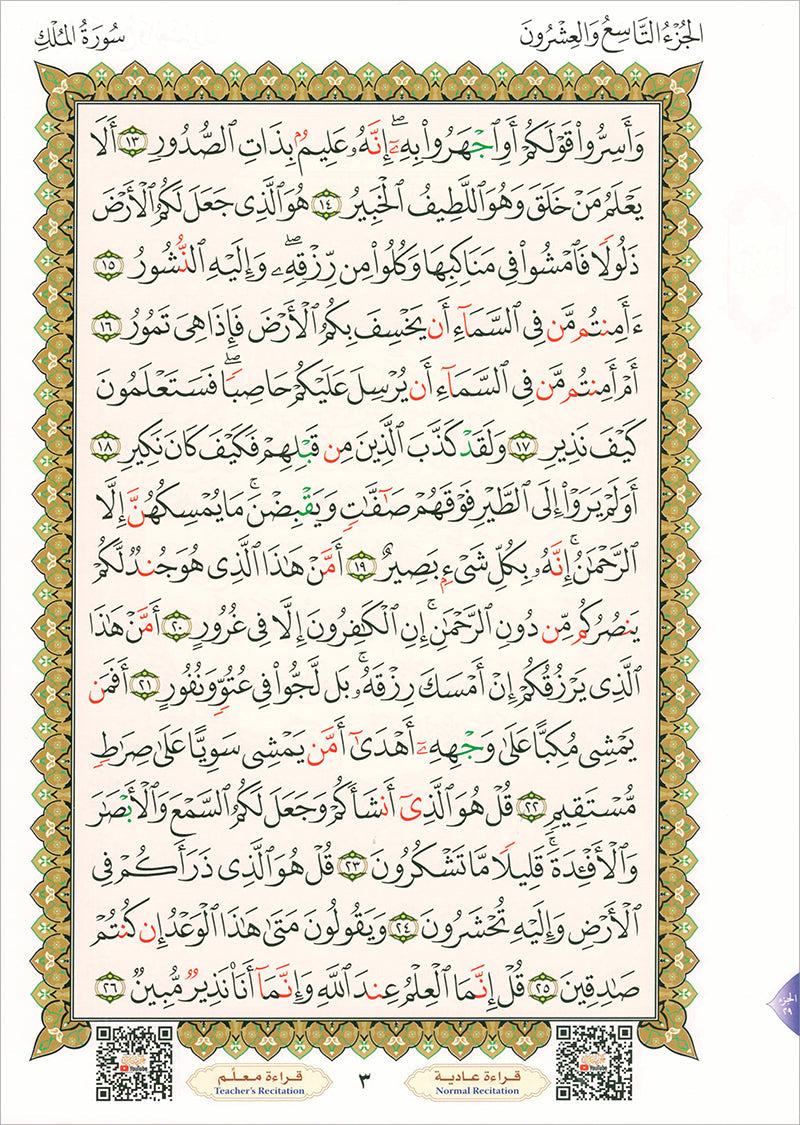 الجُزْءُ التَّاسِعُ وَالعِشْرُونَ
سُورَةُ المُلْكِ
وَأَسِرُّوا۟ قَوْلَكُمْ أَوِ ٱجْهَرُوا۟ بِهِۦٓ ۖ إِنَّهُۥ عَلِيمٌۢ بِذَاتِ ٱلصُّدُورِ ١٣ أَلَا
يَعْلَمُ مَنْ خَلَقَ وَهُوَ ٱللَّطِيفُ ٱلْخَبِيرُ ١٤ هُوَ ٱلَّذِى جَعَلَ لَكُمُ ٱلْأَرْضَ
ذَلُولًا فَٱمْشُوا۟ فِى مَنَاكِبِهَا وَكُلُوا۟ مِن رِّزْقِهِۦ ۖ وَإِلَيْهِ ٱلنُّشُورُ ١٥
ءَأَمِنتُم مَّن فِى ٱلسَّمَآءِ أَن يَخْسِفَ بِكُمُ ٱلْأَرْضَ فَإِذَا هِىَ تَمُورُ ١٦
أَمْ أَمِنتُم مَّن فِى ٱلسَّمَآءِ أَن يُرْسِلَ عَلَيْكُمْ حَاصِبًا ۖ فَسَتَعْلَمُونَ
كَيْفَ نَذِيرِ ١٧ وَلَقَدْ كَذَّبَ ٱلَّذِينَ مِن قَبْلِهِمْ فَكَيْفَ كَانَ نَكِيرِ ١٨
أَوَلَمْ يَرَوْا۟ إِلَى ٱلطَّيْرِ فَوْقَهُمْ صَٰٓفَّٰتٍ وَيَقْبِضْنَ ۚ مَا يُمْسِكُهُنَّ إِلَّا
ٱلرَّحْمَٰنُ ۚ إِنَّهُۥ بِكُلِّ شَىْءٍۭ بَصِيرٌ ١٩ أَمَّنْ هَٰذَا ٱلَّذِى هُوَ جُندٌ لَّكُمْ
يَنصُرُكُم مِّن دُونِ ٱلرَّحْمَٰنِ ۚ إِنِ ٱلْكَٰفِرُونَ إِلَّا فِى غُرُورٍ ٢٠ أَمَّنْ هَٰذَا
ٱلَّذِى يَرْزُقُكُمْ إِنْ أَمْسَكَ رِزْقَهُۥ ۚ بَل لَّجُّوا۟ فِى عُتُوٍّ وَنُفُورٍ ٢١ أَفَمَن
يَمْشِى مُكِبًّا عَلَىٰ وَجْهِهِۦٓ أَهْدَىٰٓ أَمَّن يَمْشِى سَوِيًّا عَلَىٰ صِرَٰطٍ
مُّسْتَقِيمٍ ٢٢ قُلْ هُوَ ٱلَّذِىٓ أَنشَأَكُمْ وَجَعَلَ لَكُمُ ٱلسَّمْعَ وَٱلْأَبْصَٰرَ
وَٱلْأَفْـِٔدَةَ ۖ قَلِيلًا مَّا تَشْكُرُونَ ٢٣ قُلْ هُوَ ٱلَّذِى ذَرَأَكُمْ فِى
ٱلْأَرْضِ وَإِلَيْهِ تُحْشَرُونَ ٢٤ وَيَقُولُونَ مَتَىٰ هَٰذَا ٱلْوَعْدُ إِن كُنتُمْ
صَٰدِقِينَ ٢٥ قُلْ إِنَّمَا ٱلْعِلْمُ عِندَ ٱللَّهِ وَإِنَّمَآ أَنَا۠ نَذِيرٌ مُّبِينٌ ٢٦
الجزء
٢٩
YouTube
قراءة معلّم
Teacher's Recitation
٣
قراءة عادية
Normal Recitation
YouTube